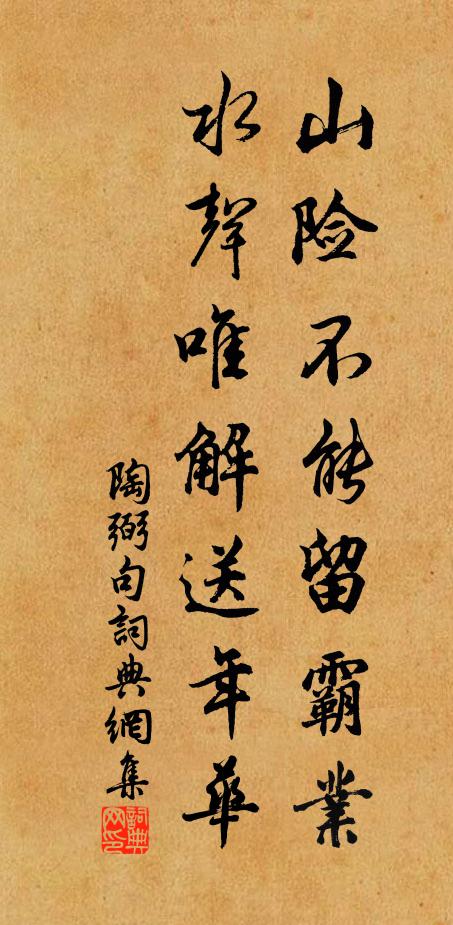 山险不能留霸業
水聲唯解送年華
陶弼句詞典網集
詞典网印